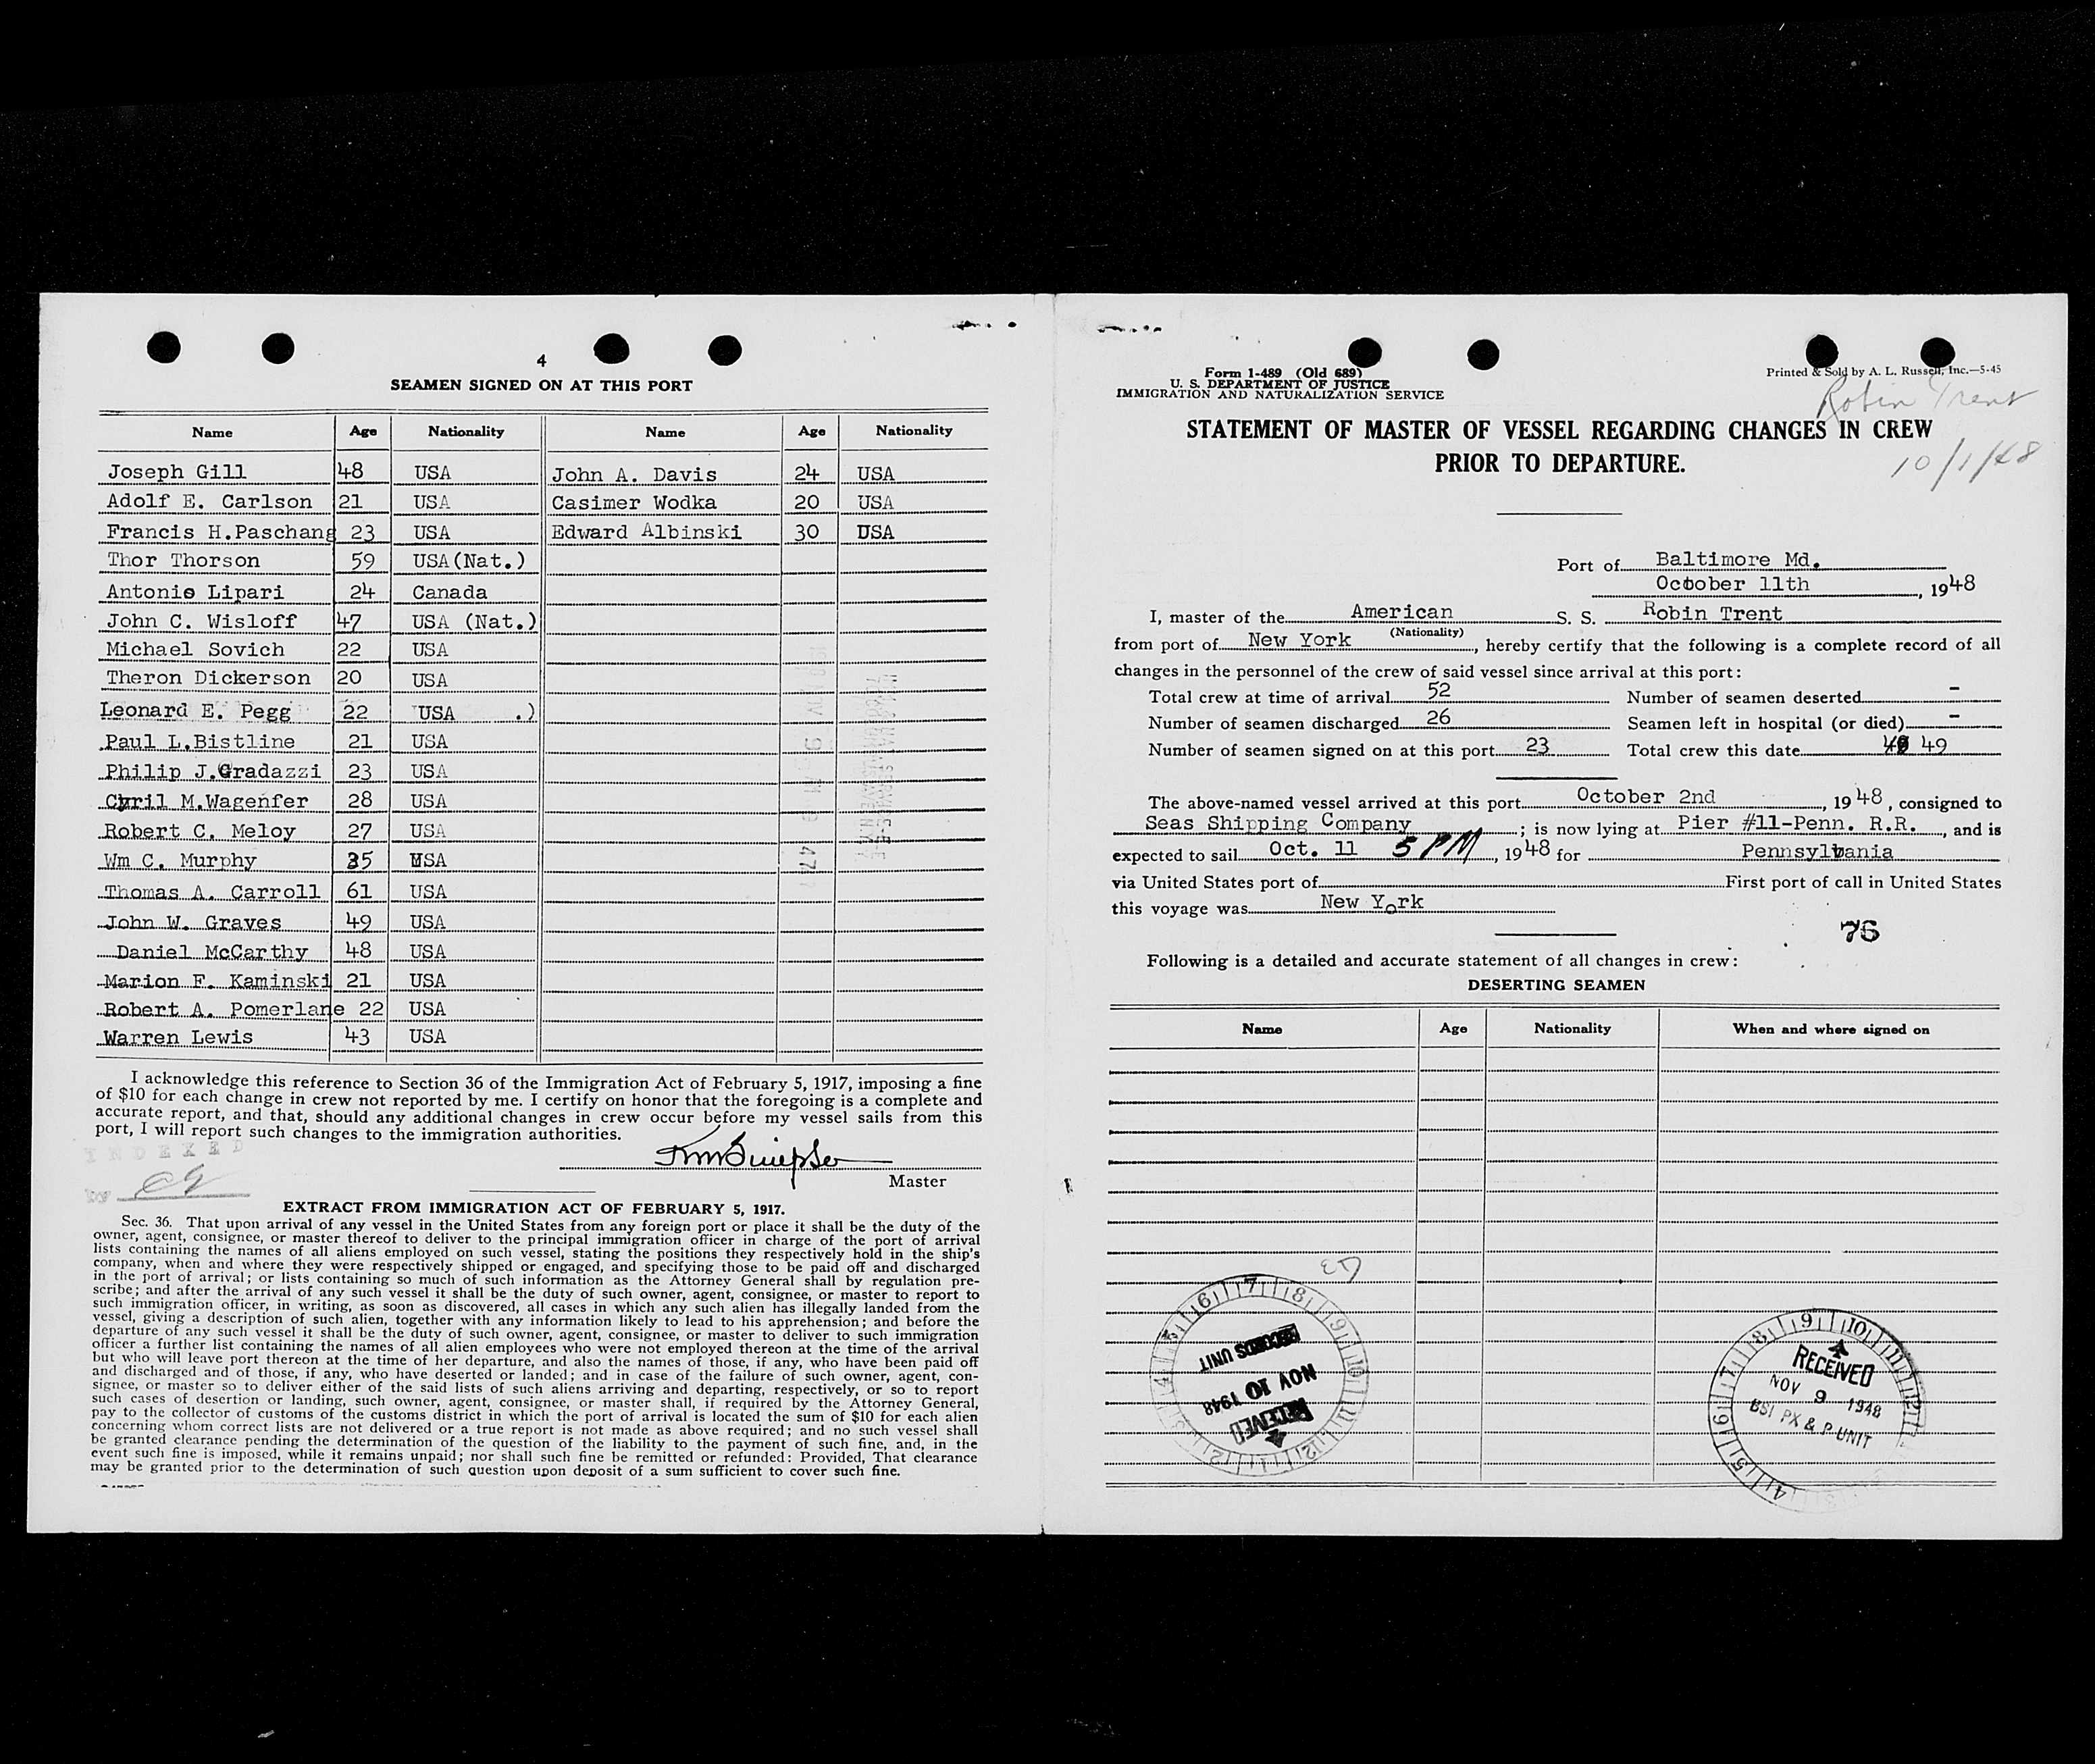 4
SEAMEN SIGNED ON AT THIS PORT
Name Age Nationality Name Age Nationality
Joseph Gill 48 USA John A. Davis 24 USA
Adolf E. Carlson 21 USA Casimer Wodka 20 USA
Francis H.Paschang 23 USA Edward Albinski 30 USA
Thor Thorson 59 USA(Nat.)
Antonio Lipari 24 Canada
John C. Wisloff 47 USA (Nat.)
Michael Sovich 22 USA
Theron Dickerson 20 USA
Leonard E. Pegg 22 USA .)
Paul L.Bistline 21 USA
Philip J.Gradazzi 23 USA
Cyril M.Wagenfer 28 USA
Robert C. Meloy 27 USA
Wm C. Murphy 35 USA
Thomas A. Carroll 61 USA
John W. Graves 49 USA
Daniel McCarthy 48 USA
Marion F. Kaminski 21 USA
Robert A. Pomerlane 22 USA
Warren Lewis 43 USA
I acknowledge this reference to Section 36 of the Immigration Act of February 5, 1917, imposing a fine
of $10 for each change in crew not reported by me. I certify on honor that the foregoing is a complete and
accurate report, and that, should any additional changes in crew occur before my vessel sails from this
port, I will report such changes to the immigration authorities.
INDEXED
by
Master
EXTRACT FROM IMMIGRATION ACT OF FEBRUARY 5, 1917.
Sec. 36. That upon arrival of any vessel in the United States from any foreign port or place it shall be the duty of the
owner, agent, consignee, or master thereof to deliver to the principal immigration officer in charge of the port of arrival
lists containing the names of all aliens employed on such vessel, stating the positions they respectively hold in the ship's
company, when and where they were respectively shipped or engaged, and specifying those to be paid off and discharged
in the port of arrival; or lists containing so much of such information as the Attorney General shall by regulation pre-
scribe; and after the arrival of any such vessel it shall be the duty of such owner, agent, consignee, or master to report to
such immigration officer, in writing, as soon as discovered, all cases in which any such alien has illegally landed from the
vessel, giving a description of such alien, together with any information likely to lead to his apprehension; and before the
departure of any such vessel it shall be the duty of such owner, agent, consignee, or master to deliver to such immigration
officer a further list containing the names of all alien employees who were not employed thereon at the time of the arrival
but who will leave port thereon at the time of her departure, and also the names of those, if any, who have been paid off
and discharged and of those, if any, who have deserted or landed; and in case of the failure of such owner, agent, con-
signee, or master so to deliver either of the said lists of such aliens arriving and departing, respectively, or so to report
such cases of desertion or landing, such owner, agent, consignee, or master shall, if required by the Attorney General,
pay to the collector of customs of the customs district in which the port of arrival is located the sum of $10 for each alien
concerning whom correct lists are not delivered or a true report is not made as above required; and no such vessel shall
be granted clearance pending the determination of the question of the liability to the payment of such fine, and, in the
event such fine is imposed, while it remains unpaid; nor shall such fine be remitted or refunded: Provided, That clearance
may be granted prior to the determination of such question upon deposit of a sum sufficient to cover such fine.
Form 1-489 (Old 689)
U. S. DEPARTMENT OF JUSTICE
IMMIGRATION AND NATURALIZATION SERVICE
Printed & Sold by A. L. Russell, Inc.—5-45
Robin Trent
STATEMENT OF MASTER OF VESSEL REGARDING CHANGES IN CREW
PRIOR TO DEPARTURE.
10/1/48
Port of Baltimore Md.
October 11th, 1948
I, master of the American S. S. Robin Trent
(Nationality)
from port of New York, hereby certify that the following is a complete record of all
changes in the personnel of the crew of said vessel since arrival at this port:
Total crew at time of arrival 52 Number of seamen deserted -
Number of seamen discharged 26 Seamen left in hospital (or died) -
Number of seamen signed on at this port 23 Total crew this date 49
The above-named vessel arrived at this port October 2nd, 1948, consigned to
Seas Shipping Company; is now lying at Pier #11-Penn. R.R., and is
expected to sail Oct. 11 5 PM, 1948 for Pennsylvania
via United States port of First port of call in United States
this voyage was New York
75
Following is a detailed and accurate statement of all changes in crew:
DESERTING SEAMEN
Name Age Nationality When and where signed on
RECEIVED
NOV 10 1948
RECORDS UNIT
RECEIVED
NOV 9 1948
BSI PX & P UNIT